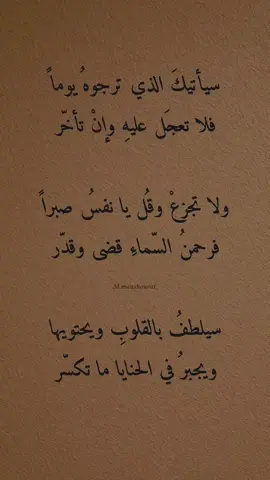 سيأتيكَ الذي ترجوهُ يوماً
فلا تعجَل عليهِ وإنْ تأخّر
ولا تجزعْ وقُل يا نفسُ صبراً
فرحمنُ السّماءِ قضى وقدّر
سيلطفُ بالقلوبِ ويحتويها
ويجبرُ في الحنايا ما تكسّر